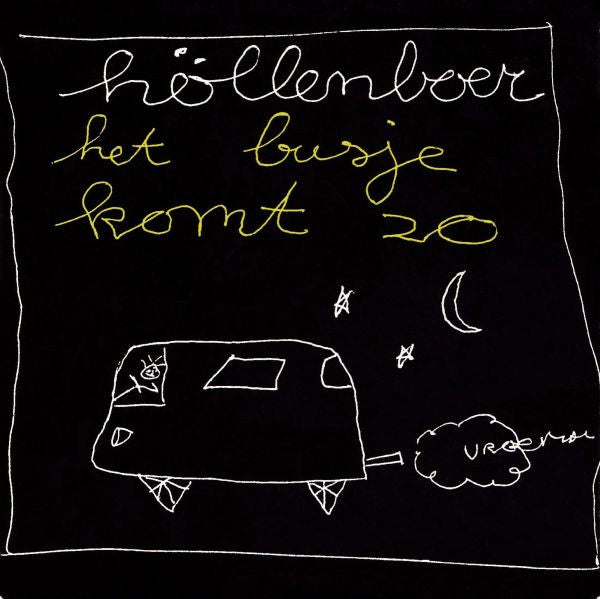 höllenboer
het busje
komt zo
VROEMM